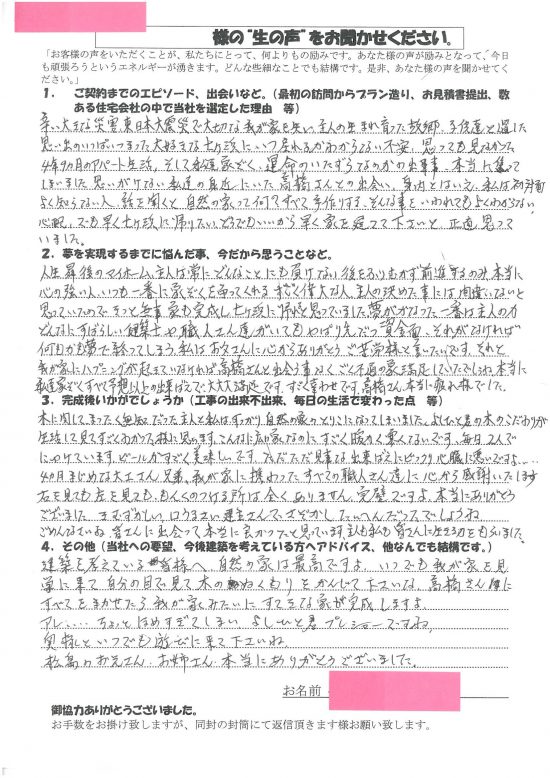 様の"生の声"をお聞かせください。
「お客様の声をいただくことが、私たちにとって、何よりもの励みです。あなた様の声が励みとなって、今日
も頑張ろうというエネルギーが湧きます。どんな些細なことでも結構です。是非、あなた様の声を聞かせてく
ださい。」
1. ご契約までのエピソード、出会いなど。（最初の訪問からプラン造り、お見積書提出、数
ある住宅会社の中で当社を選定した理由 等）
辛い大きな災害東日本大震災で大切な我が家を失い、主人の生まれ育った故郷、子供達と過した
思い出のいっぱいつまった大好きな七ヶ浜にいつ戻れるかわからない不安、思っても見なかった
4年9ヵ月のアパート生活。そして私達家ぞく、運命のいたずらなのかの出来事、本当に集って
しまいました。思いがけない私達の身近にいた高橋さんとの出会い、身内とはいえ、私は初対面
よく知らない人、話を聞くと自然の家って何?すべて手作りする、そんな事をいわれてもよくわからない
心配、でも早く七ヶ浜に帰りたい、どうでもいいから早く家を建てて下さいと、正直思って
いました。
2. 夢を実現するまでに悩んだ事、今だから思うことなど。
人生最後のマイホーム、主人は常にどんなことにも負けない、後をふりむかず前進するのみ、本当に
心の強い人、いつも一番に家ぞくを守ってくれるすごく偉大な人、主人の決めた事には間違いないと
思っていたので、きっと無事家も完成し七ヶ浜に帰れると思っていました。夢がかなった一番は主人の力
どんなにすばらしい建築士や職人さん達がいてもやはり先だつ資金面、それがなければ
何日かも夢で終ってしまう、私はお父さんに心からありがとう、ご苦労様と言いたいです。それと
我が家にハプニングが起きていなければ高橋さんと出会う事なくごく不通の家で満足していたでしょね、本当に
私達家ぞくすべて予想以上の出来ばえで大大大満足です。すごく幸わせです、高橋さん、本当に疲れ様でした。
3. 完成後いかがでしょうか（工事の出来不出来、毎日の生活で変わった点 等）
木に関してまったく無知だった主人と私はすっかり自然の家のとりこになってしまいました。よしひと君の木のこだわりが
生活して見てすごくわかった様に思います。こんなに広い家なのにすごく暖かく寒くないです。毎日2人で
にやけています。ビールがすごく美味しいです。ただただ見事な出来ばえにビックリ心臓に悪いですよ…
4ヵ月まじめな大工さん兄弟、我が家に携わったすべての職人さん達に心から感謝いたします
右を見ても左を見ても、もんくのつける所は全くありません。完璧ですよ、本当にありがとう
ございました。きむずかしい、口うるさい建主さんで、さぞかしたいへんだったでしょうね
ごめんなさいね。皆さんに出会って本当に良かったと思っています。主人も私も皆さんに生きる力をもらいました。
4. その他（当社への要望、今後建築を考えている方へアドバイス、他なんでも結構です。）
建築を考えている皆様へ、自然の家は最高ですよ。いつでも我が家を見
学に来て自分の目で見て木のぬくもりをかんじて下さいな、高橋さんに
すべてをまかせたら我が家みたいにすてきな家が完成しますよ。
アレ… ちょっとほめすぎてしまい よしひと君プレッシャーですね、
奥様といつでも遊びに来て下さいね。
松島のお兄さん、お姉さん、本当にありがとうございました。
お名前
御協力ありがとうございました。
お手数をお掛け致しますが、同封の封筒にて返信頂きます様お願い致します。